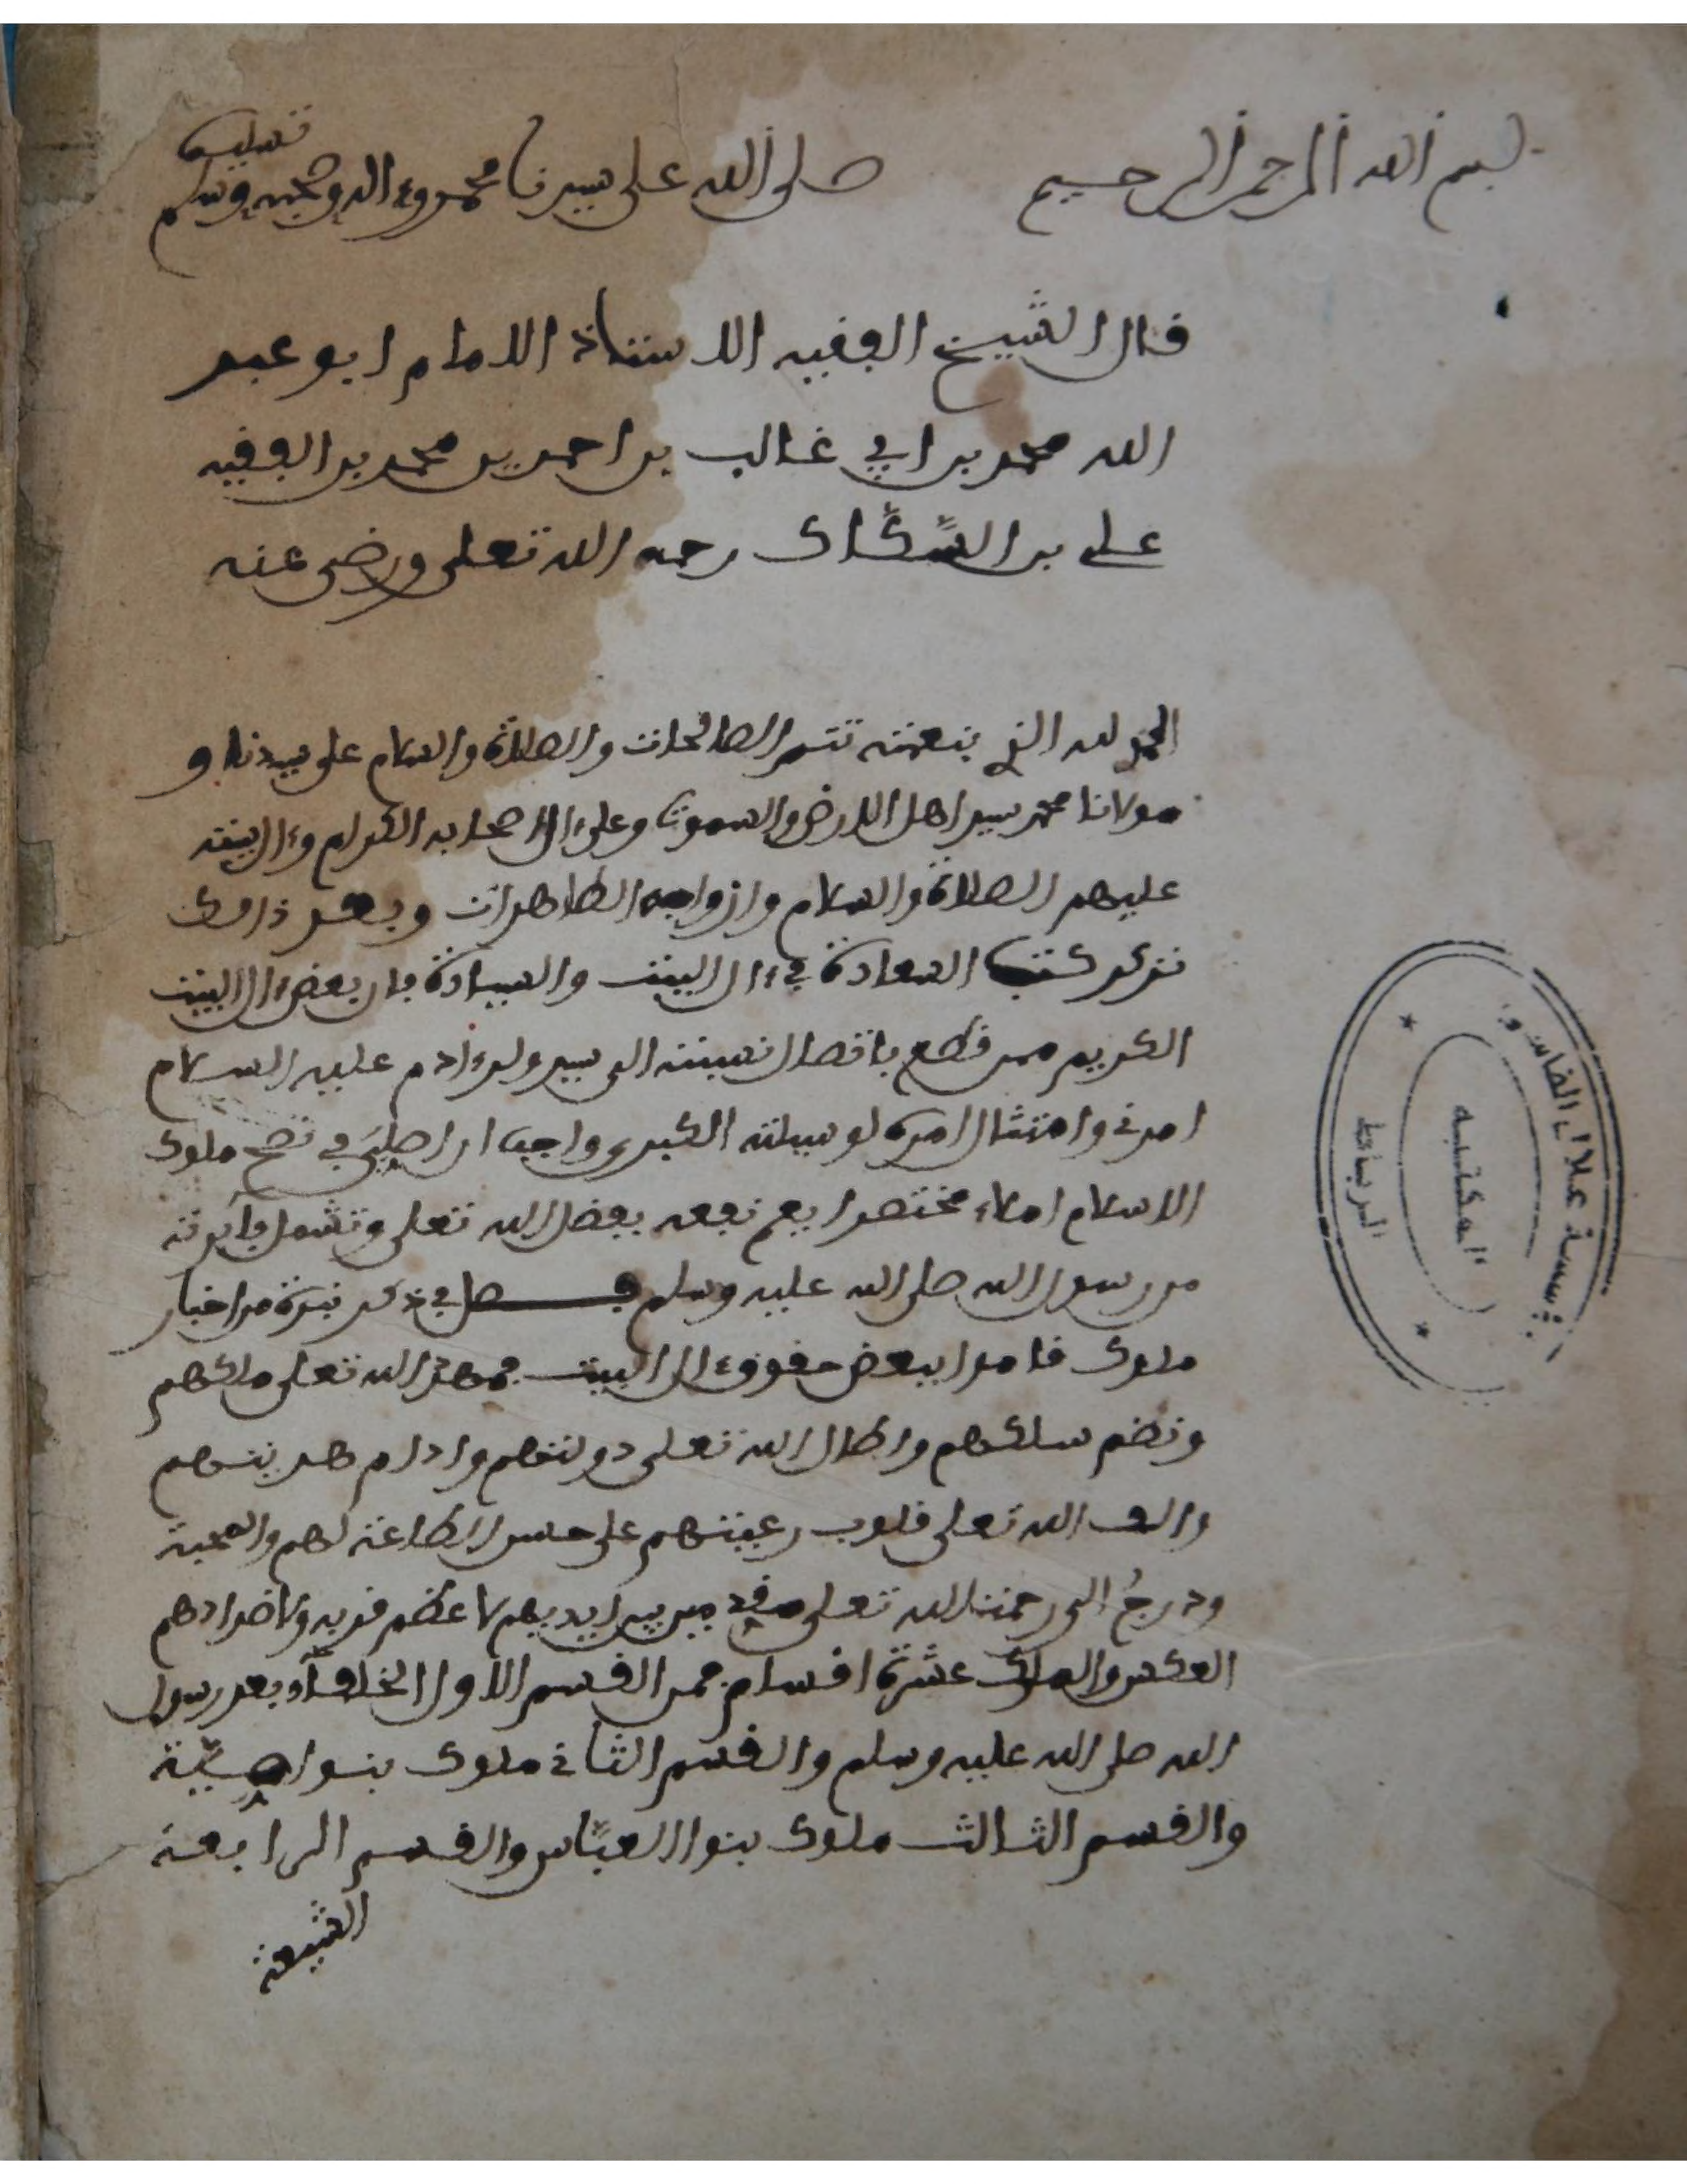 بسم الله الرحمن الرحيم صلى الله على سيدنا محمد وءاله وصحبه وسلم تسليما
قال الشيخ الفقيه الاستاذ الامام ابو عبد
الله محمد بن ابي غالب بن احمد بن محمد بن الفقيه
علي بن السكاك رحمه الله تعلى ورضي عنه
الحمد لله الذي بنعمته تتم الصالحات والصلاة والسلام على سيدنا و
مولانا محمد سيد اهل الارض والسموت وعلى اصحابه الكرام وءال بيته
عليهم الصلاة والسلام وازواجه الطاهرات وبعد
السعادة في ءال البيت والسيادة فان بعض ءال البيت
الكريم ممن قطع باتصال نسبته الى سيد ولد ءادم عليه السلام
امرني وامتثال امره لوسيلته الكبرى واجب ان في نصح ملوك
الاسلام املاء مختصرا يعم نفعه بفضل الله تعلى وتشمل
من رسول الله صلى الله عليه وسلم فصل في ذكر نبذة من اخبار
ملوك قاموا ببعض حقوق ءال البيت فمهد الله تعلى ملكهم
ونضم سلكهم واطال الله تعلى دولتهم وادام هدينهم
والف الله تعلى قلوب رعيتهم على حسن الطاعة لهم والمحبة
ودرج الى رحمة الله تعلى من بين ايديهم لاعظم قربه ولاضدادهم
العكس والملوك عشرة اقسام فمن القسم الاول الخلفاء بعد رسول
الله صلى الله عليه وسلم والقسم الثاني ملوك بنوا امية
والقسم الثالث ملوك بنوا العباس والقسم الرابعة
الشيعة
مؤسسة علال الفاسي
المكتبة
الرباط